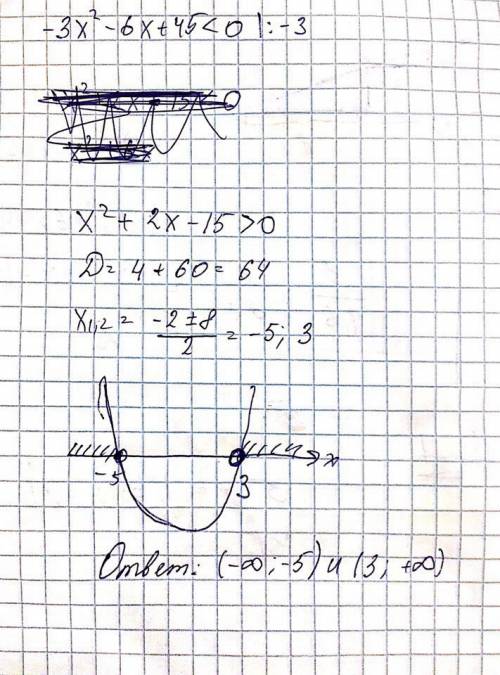 -3x²-6x+45<0 |:-3
x²+ 2x-15>0
D= 4+60= 64
x₁,₂ = (-2±8)/2 = -5; 3
-5 3 x
Ответ: (-∞;-5) и (3; +∞)